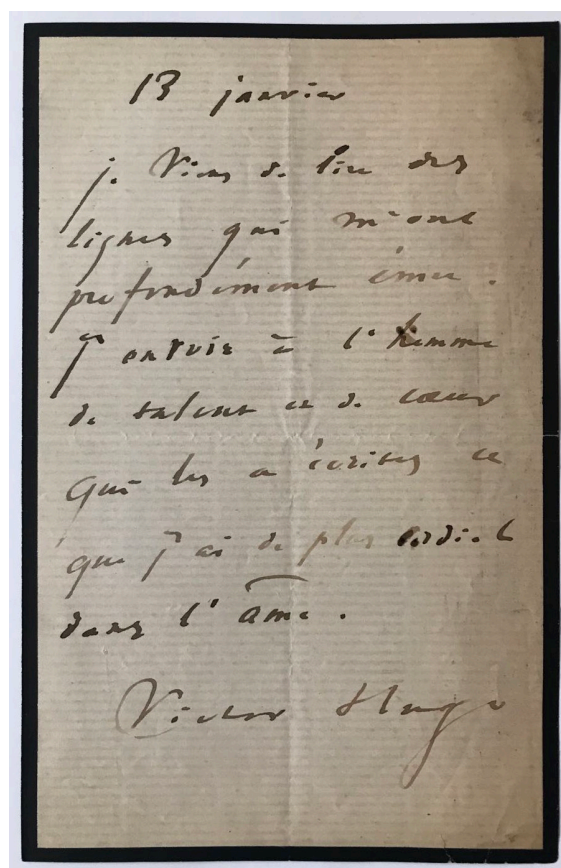 13 janvier
je viens de lire des
lignes qui m'ont
profondément ému.
j'envoie à l'homme
de talent et de cœur
qui les a écrites ce
que j'ai de plus cordial
dans l'âme.
Victor Hugo